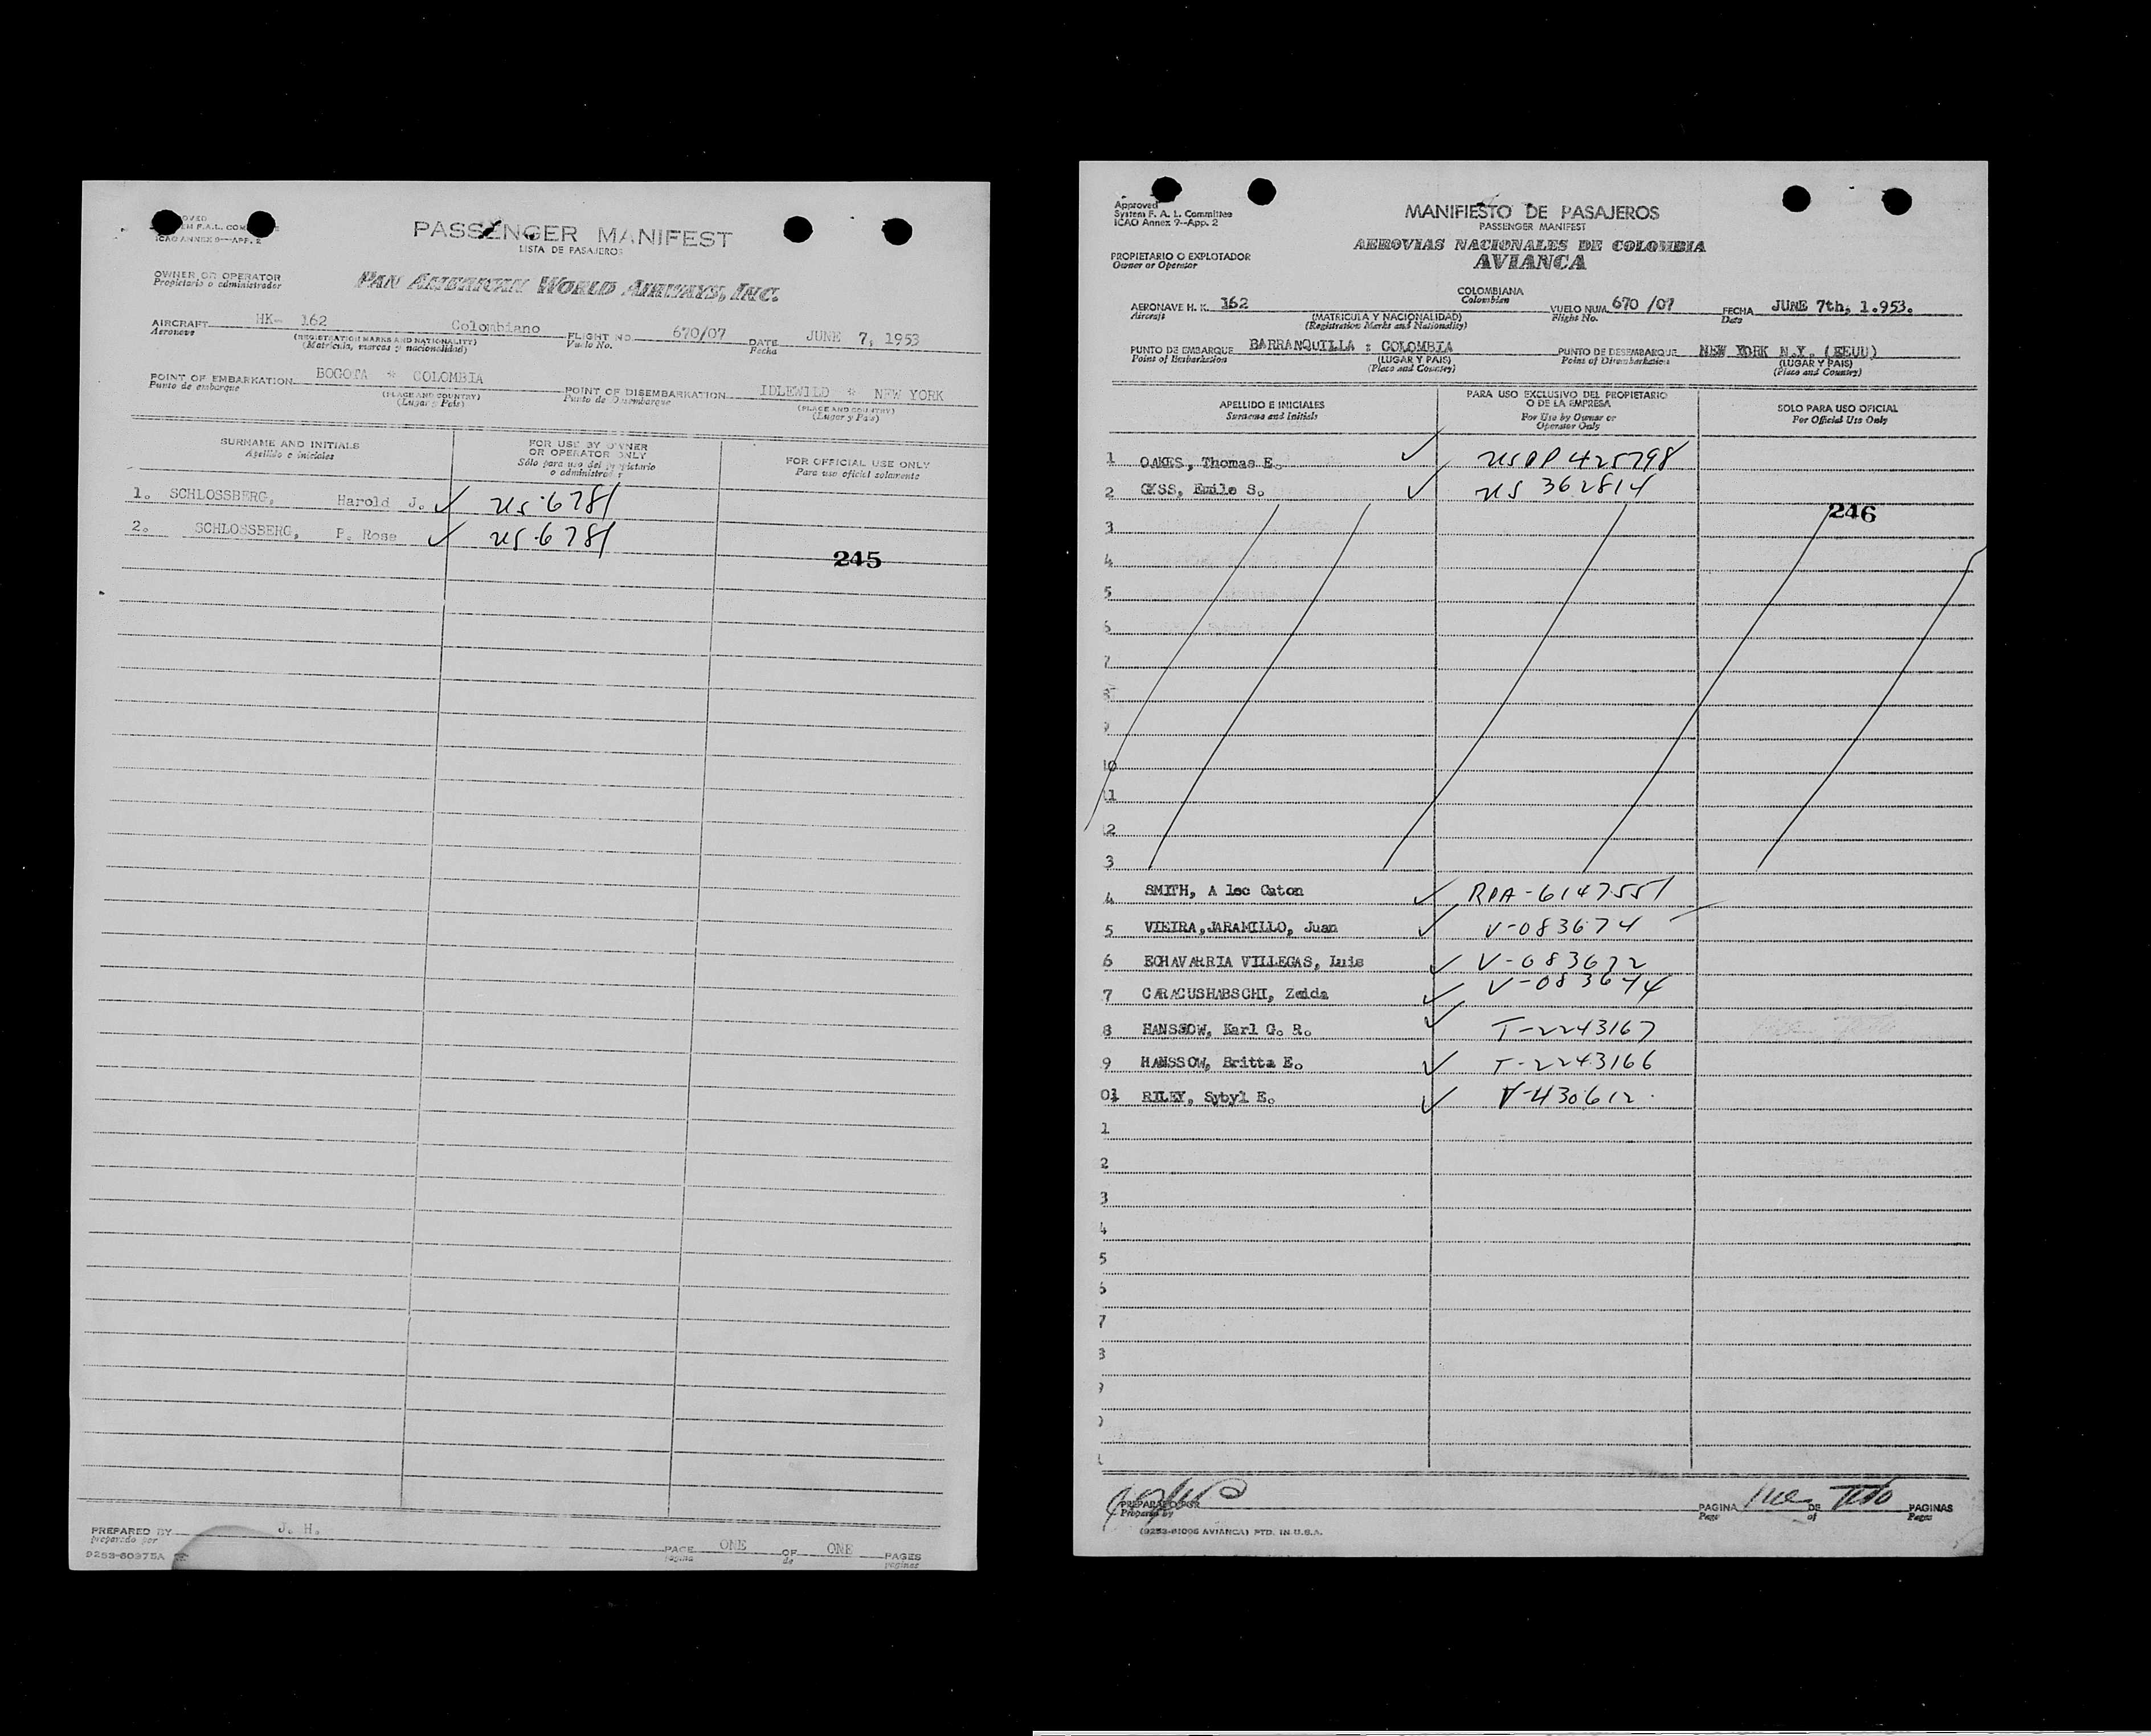 OVED
EM F.A.L. COM
ICAO ANNEX 9—APP. 2
PASSENGER MANIFEST
LISTA DE PASAJEROS
OWNER OR OPERATOR
Propietario o administrador
PAN AMERICAN WORLD AIRWAYS, INC.
AIRCRAFT HK- 162 Colombiano FLIGHT NO. 670/07 DATE JUNE 7, 1953
Aeronave (REGISTRATION MARKS AND NATIONALITY) Vuelo No. Fecha
(Matrícula, marcas y nacionalidad)
POINT OF EMBARKATION BOGOTA * COLOMBIA POINT OF DISEMBARKATION IDLEWILD * NEW YORK
Punto de embarque (PLACE AND COUNTRY) Punto de Desembarque (PLACE AND COUNTRY)
(Lugar y País) (Lugar y País)
SURNAME AND INITIALS
Apellido e iniciales
FOR USE BY OWNER
OR OPERATOR ONLY
Sólo para uso del propietario
o administrador
FOR OFFICIAL USE ONLY
Para uso oficial solamente
1. SCHLOSSBERG, Harold J. ✓ US-6781
2. SCHLOSSBERG, P. Rose ✓ US-6781
245
PREPARED BY J. H.
preparado por
9253-60975A
PAGE ONE OF ONE PAGES
página de páginas
Approved
System F. A. L. Committee
ICAO Annex 9--App. 2
MANIFIESTO DE PASAJEROS
PASSENGER MANIFEST
AEROVIAS NACIONALES DE COLOMBIA
AVIANCA
PROPIETARIO O EXPLOTADOR
Owner or Operator
AERONAVE H. K. 162 COLOMBIANA VUELO NUM. 670 /07 FECHA JUNE 7th, 1.953.
Aircraft Colombian Flight No. Date
(MATRICULA Y NACIONALIDAD)
(Registration Marks and Nationality)
PUNTO DE EMBARQUE BARRANQUILLA : COLOMBIA PUNTO DE DESEMBARQUE NEW YORK N.Y. (EEUU)
Point of Embarkation (LUGAR Y PAIS) Point of Disembarkation (LUGAR Y PAIS)
(Place and Country) (Place and Country)
APELLIDO E INICIALES
Surname and Initials
PARA USO EXCLUSIVO DEL PROPIETARIO
O DE LA EMPRESA
For Use by Owner or
Operator Only
SOLO PARA USO OFICIAL
For Official Use Only
1 OAKES, Thomas E. ✓ USPP 425798
2 GESS, Emile S. ✓ US 362814
246
3
4
5
6
7
8
9
10
11
12
3
4 SMITH, A lec Caton ✓ RPA-6147551
5 VIEIRA,JARAMILLO, Juan ✓ V-083674
6 ECHAVARRIA VILLEGAS, Luis ✓ V-083672
7 CARACUSHABSCHI, Zeida ✓ V-083644
8 HANSSOW, Karl G. R. ✓ T-2243167
9 HANSSOW, Britta E. ✓ T-2243166
0 RILEY, Sybyl E. ✓ V-430612
1
2
3
4
5
6
7
8
9
0
PREPARADO POR
Prepared by
PAGINA DE PAGINAS
Page of Pages
(9253-61096 AVIANCA) PTD. IN U.S.A.